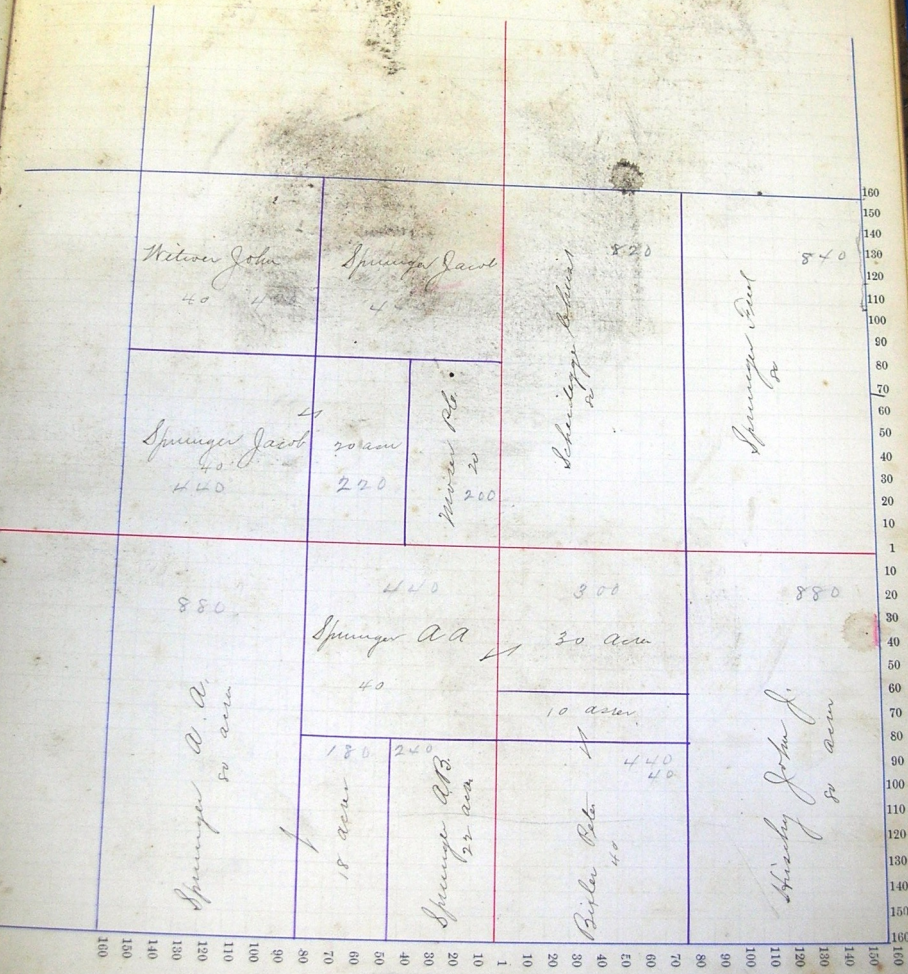 Witwer John
40
Sprunger Jacob
4
820
Scheidegger Chris
80
840
Sprunger Fred
80
Sprunger Jacob
40
440
20 acer
220
Moser P.C.
20
200
880
Sprunger A. A.
80 acres
440
Sprunger A A
40
300
30 Acres
10 acres
880
Hirschy John J.
80 acres
180
18 acres
240
Sprunger A.B.
22 acres
440
40
Bixler Peter
40
160
150
140
130
120
110
100
90
80
70
60
50
40
30
20
10
1
10
20
30
40
50
60
70
80
90
100
110
120
130
140
150
160
160 150 140 130 120 110 100 90 80 70 60 50 40 30 20 10 1 10 20 30 40 50 60 70 80 90 100 110 120 130 140 150 160